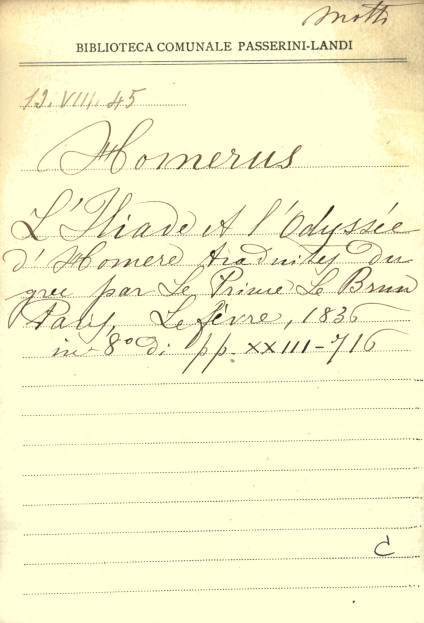 Motti
BIBLIOTECA COMUNALE PASSERINI-LANDI
12. VIII. 45
Homerus
L'Iliade et l'Odyssée
d'Homere traduites du
grec par Le Prince Le Brun
Paris, Lefèvre, 1836
in 8° di pp. XXIII-716
C